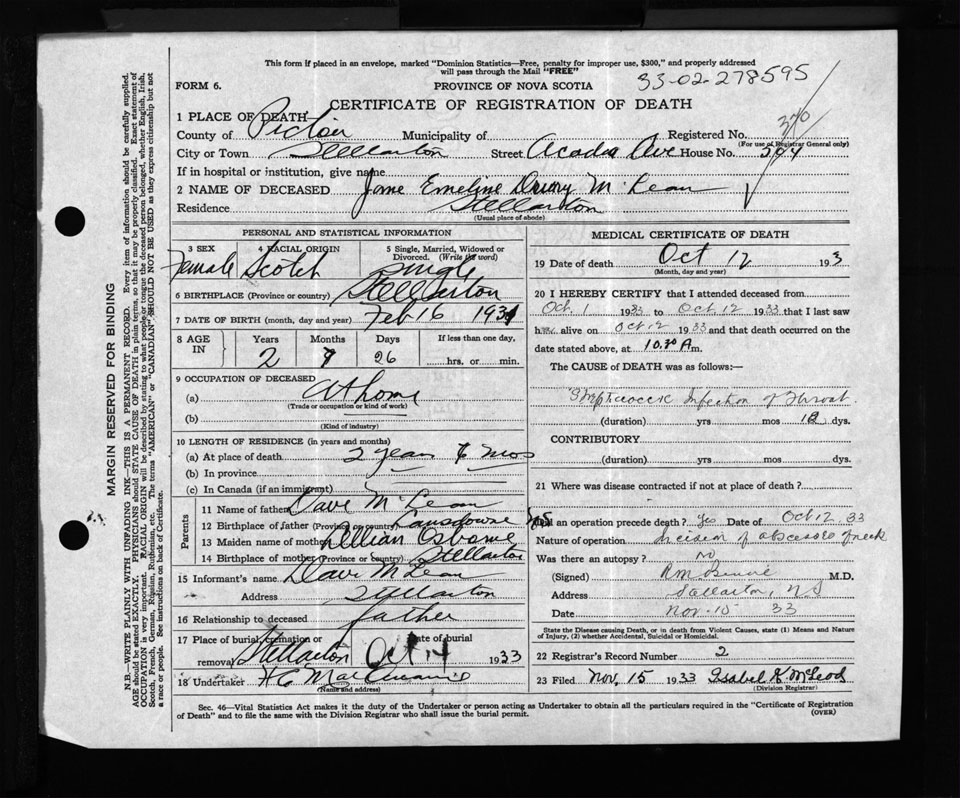 This form if placed in an envelope, marked "Dominion Statistics—Free, penalty for improper use, $300," and properly addressed
will pass through the Mail "FREE"
33-02-278595
FORM 6.
PROVINCE OF NOVA SCOTIA
CERTIFICATE OF REGISTRATION OF DEATH
1 PLACE OF DEATH
County of Pictou Municipality of Registered No. 370
(For use of Registrar General only)
City or Town Stellarton Street Acadia Ave House No. 504
If in hospital or institution, give name
2 NAME OF DECEASED Jane Emeline Drury McLean
Residence Stellarton
(Usual place of abode)
PERSONAL AND STATISTICAL INFORMATION
3 SEX 4 RACIAL ORIGIN 5 Single, Married, Widowed or Divorced. (Write the word)
Female Scotch Single
6 BIRTHPLACE (Province or country) Stellarton
7 DATE OF BIRTH (month, day and year) Feb 16 1931
8 AGE IN Years Months Days If less than one day,
2 7 26 hrs. or min.
9 OCCUPATION OF DECEASED
(a) At home
(Trade or occupation or kind of work)
(b)
(Kind of industry)
10 LENGTH OF RESIDENCE (in years and months)
(a) At place of death 2 years mos
(b) In province
(c) In Canada (if an immigrant)
Parents
11 Name of father Dave McLean
12 Birthplace of father (Province or country) Lansdowne NS
13 Maiden name of mother Lillian Osborne
14 Birthplace of mother (Province or country) Stellarton
15 Informant's name Dave McLean
Address Stellarton
16 Relationship to deceased father
17 Place of burial, cremation or removal Stellarton Date of burial Oct 14 1933
18 Undertaker H C
(Name and address)
MEDICAL CERTIFICATE OF DEATH
19 Date of death Oct 12 193
(Month, day and year)
20 I HEREBY CERTIFY that I attended deceased from
Oct. 1 1933 to Oct 12 1933 that I last saw
h alive on Oct 12 1933 and that death occurred on
date stated above, at 10.30 A m.
The CAUSE of DEATH was as follows:—
Infection of throat
(duration) yrs mos 12 dys.
CONTRIBUTORY
(duration) yrs. mos. dys.
21 Where was disease contracted if not at place of death?
Did an operation precede death? yes Date of Oct 12, 33
Nature of operation Incision of abscess of neck
Was there an autopsy? No
(Signed) M.D.
Address Stellarton, NS
Date Nov-15 33
State the Disease causing Death, or in death from Violent Causes, state (1) Means and Nature
of Injury, (2) whether Accidental, Suicidal or Homicidal.
22 Registrar's Record Number 2
23 Filed Nov, 15 1933 Isabel K McLeod
(Division Registrar)
Sec. 46—Vital Statistics Act makes it the duty of the Undertaker or person acting as Undertaker to obtain all the particulars required in the "Certificate of Registration
of Death" and to file the same with the Division Registrar who shall issue the burial permit.
(OVER)
MARGIN RESERVED FOR BINDING
N.B.—WRITE PLAINLY WITH UNFADING INK—THIS IS A PERMANENT RECORD. Every item of information should be carefully supplied.
AGE should be stated EXACTLY. PHYSICIANS should STATE CAUSE OF DEATH in plain terms, so that it may be properly classified. Exact statement of
OCCUPATION is very important. RACIAL ORIGIN will be described by stating to what people or tongue the deceased person belonged, whether English, Irish,
Scotch, French, German, Russian, Ruthenian, etc. The terms "AMERICAN" or "CANADIAN" SHOULD NOT BE USED as they express citizenship but not
a race or people. See instructions on back of Certificate.